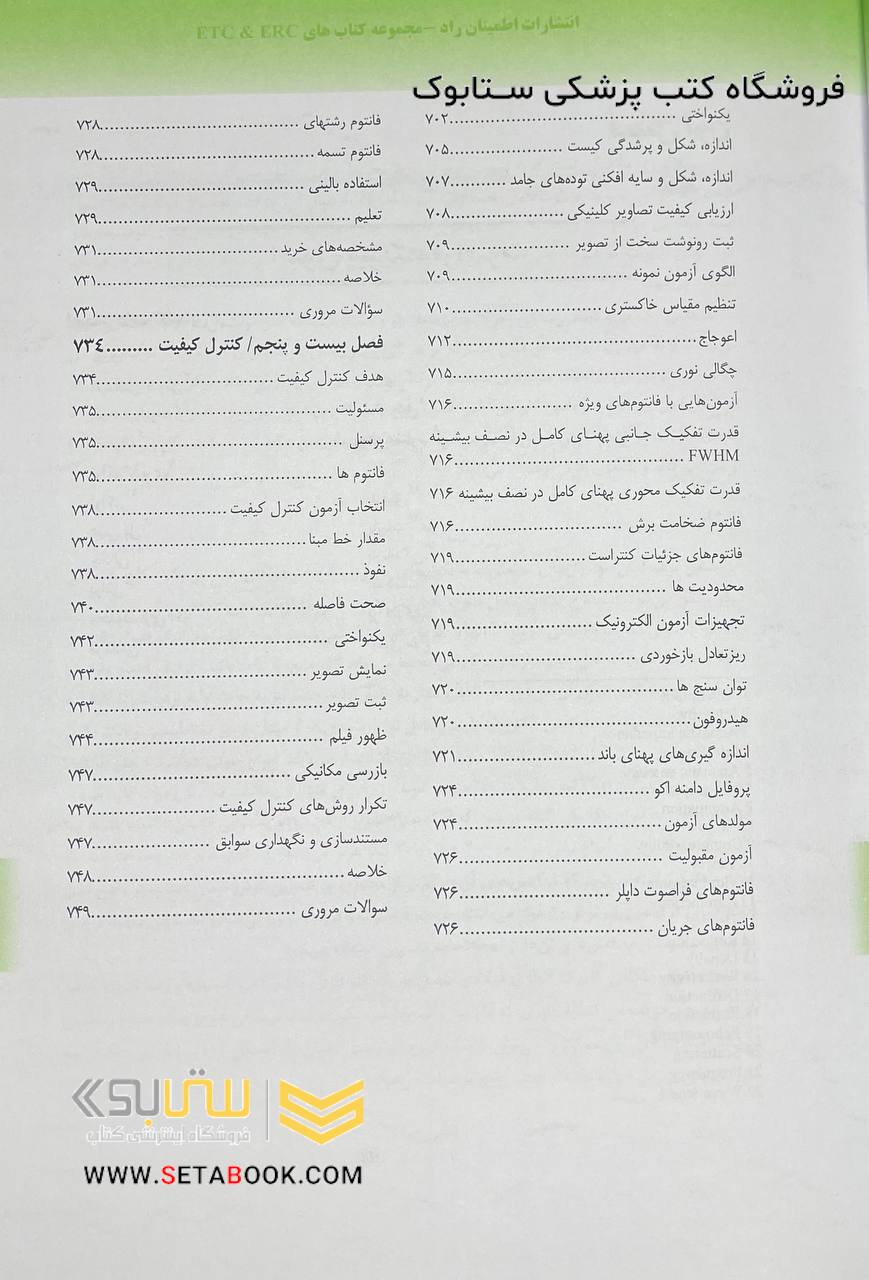 انتشارات اطمینان راد – مجموعه کتاب های ETC & ERC
فروشگاه کتب پزشکی ســتابوک
یکنواختی ........ ۷۰۲
اندازه، شکل و پرشدگی کیست ........ ۷۰۵
اندازه، شکل و سایه افکنی توده‌های جامد ........ ۷۰۷
ارزیابی کیفیت تصاویر کلینیکی ........ ۷۰۸
ثبت رونوشت سخت از تصویر ........ ۷۰۹
الگوی آزمون نمونه ........ ۷۰۹
تنظیم مقیاس خاکستری ........ ۷۱۰
اعوجاج ........ ۷۱۲
چگالی نوری ........ ۷۱۵
آزمون‌هایی با فانتوم‌های ویژه ........ ۷۱۶
قدرت تفکیک جانبی پهنای کامل در نصف بیشینه
FWHM ........ ۷۱۶
قدرت تفکیک محوری پهنای کامل در نصف بیشینه ۷۱۶
فانتوم ضخامت برش ........ ۷۱۶
فانتوم‌های جزئیات کنتراست ........ ۷۱۹
محدودیت ها ........ ۷۱۹
تجهیزات آزمون الکترونیک ........ ۷۱۹
ریزتعادل بازخوردی ........ ۷۱۹
توان سنج ها ........ ۷۲۰
هیدروفون ........ ۷۲۰
اندازه گیری‌های پهنای باند ........ ۷۲۱
پروفایل دامنه اکو ........ ۷۲۴
مولدهای آزمون ........ ۷۲۴
آزمون مقبولیت ........ ۷۲۶
فانتوم‌های فراصوت داپلر ........ ۷۲۶
فانتوم‌های جریان ........ ۷۲۶
فانتوم رشتهای ........ ۷۲۸
فانتوم تسمه ........ ۷۲۸
استفاده بالینی ........ ۷۲۹
تعلیم ........ ۷۲۹
مشخصه‌های خرید ........ ۷۳۱
خلاصه ........ ۷۳۱
سؤالات مروری ........ ۷۳۱
فصل بیست و پنجم/ کنترل کیفیت ........ ۷۳٤
هدف کنترل کیفیت ........ ۷۳۴
مسئولیت ........ ۷۳۵
پرسنل ........ ۷۳۵
فانتوم ها ........ ۷۳۵
انتخاب آزمون کنترل کیفیت ........ ۷۳۸
مقدار خط مبنا ........ ۷۳۸
نفوذ ........ ۷۳۸
صحت فاصله ........ ۷۴۰
یکنواختی ........ ۷۴۲
نمایش تصویر ........ ۷۴۳
ثبت تصویر ........ ۷۴۳
ظهور فیلم ........ ۷۴۴
بازرسی مکانیکی ........ ۷۴۷
تکرار روش‌های کنترل کیفیت ........ ۷۴۷
مستندسازی و نگهداری سوابق ........ ۷۴۷
خلاصه ........ ۷۴۸
سوالات مروری ........ ۷۴۹
ستابوک
فروشگاه اینترنتی کتاب
WWW.SETABOOK.COM